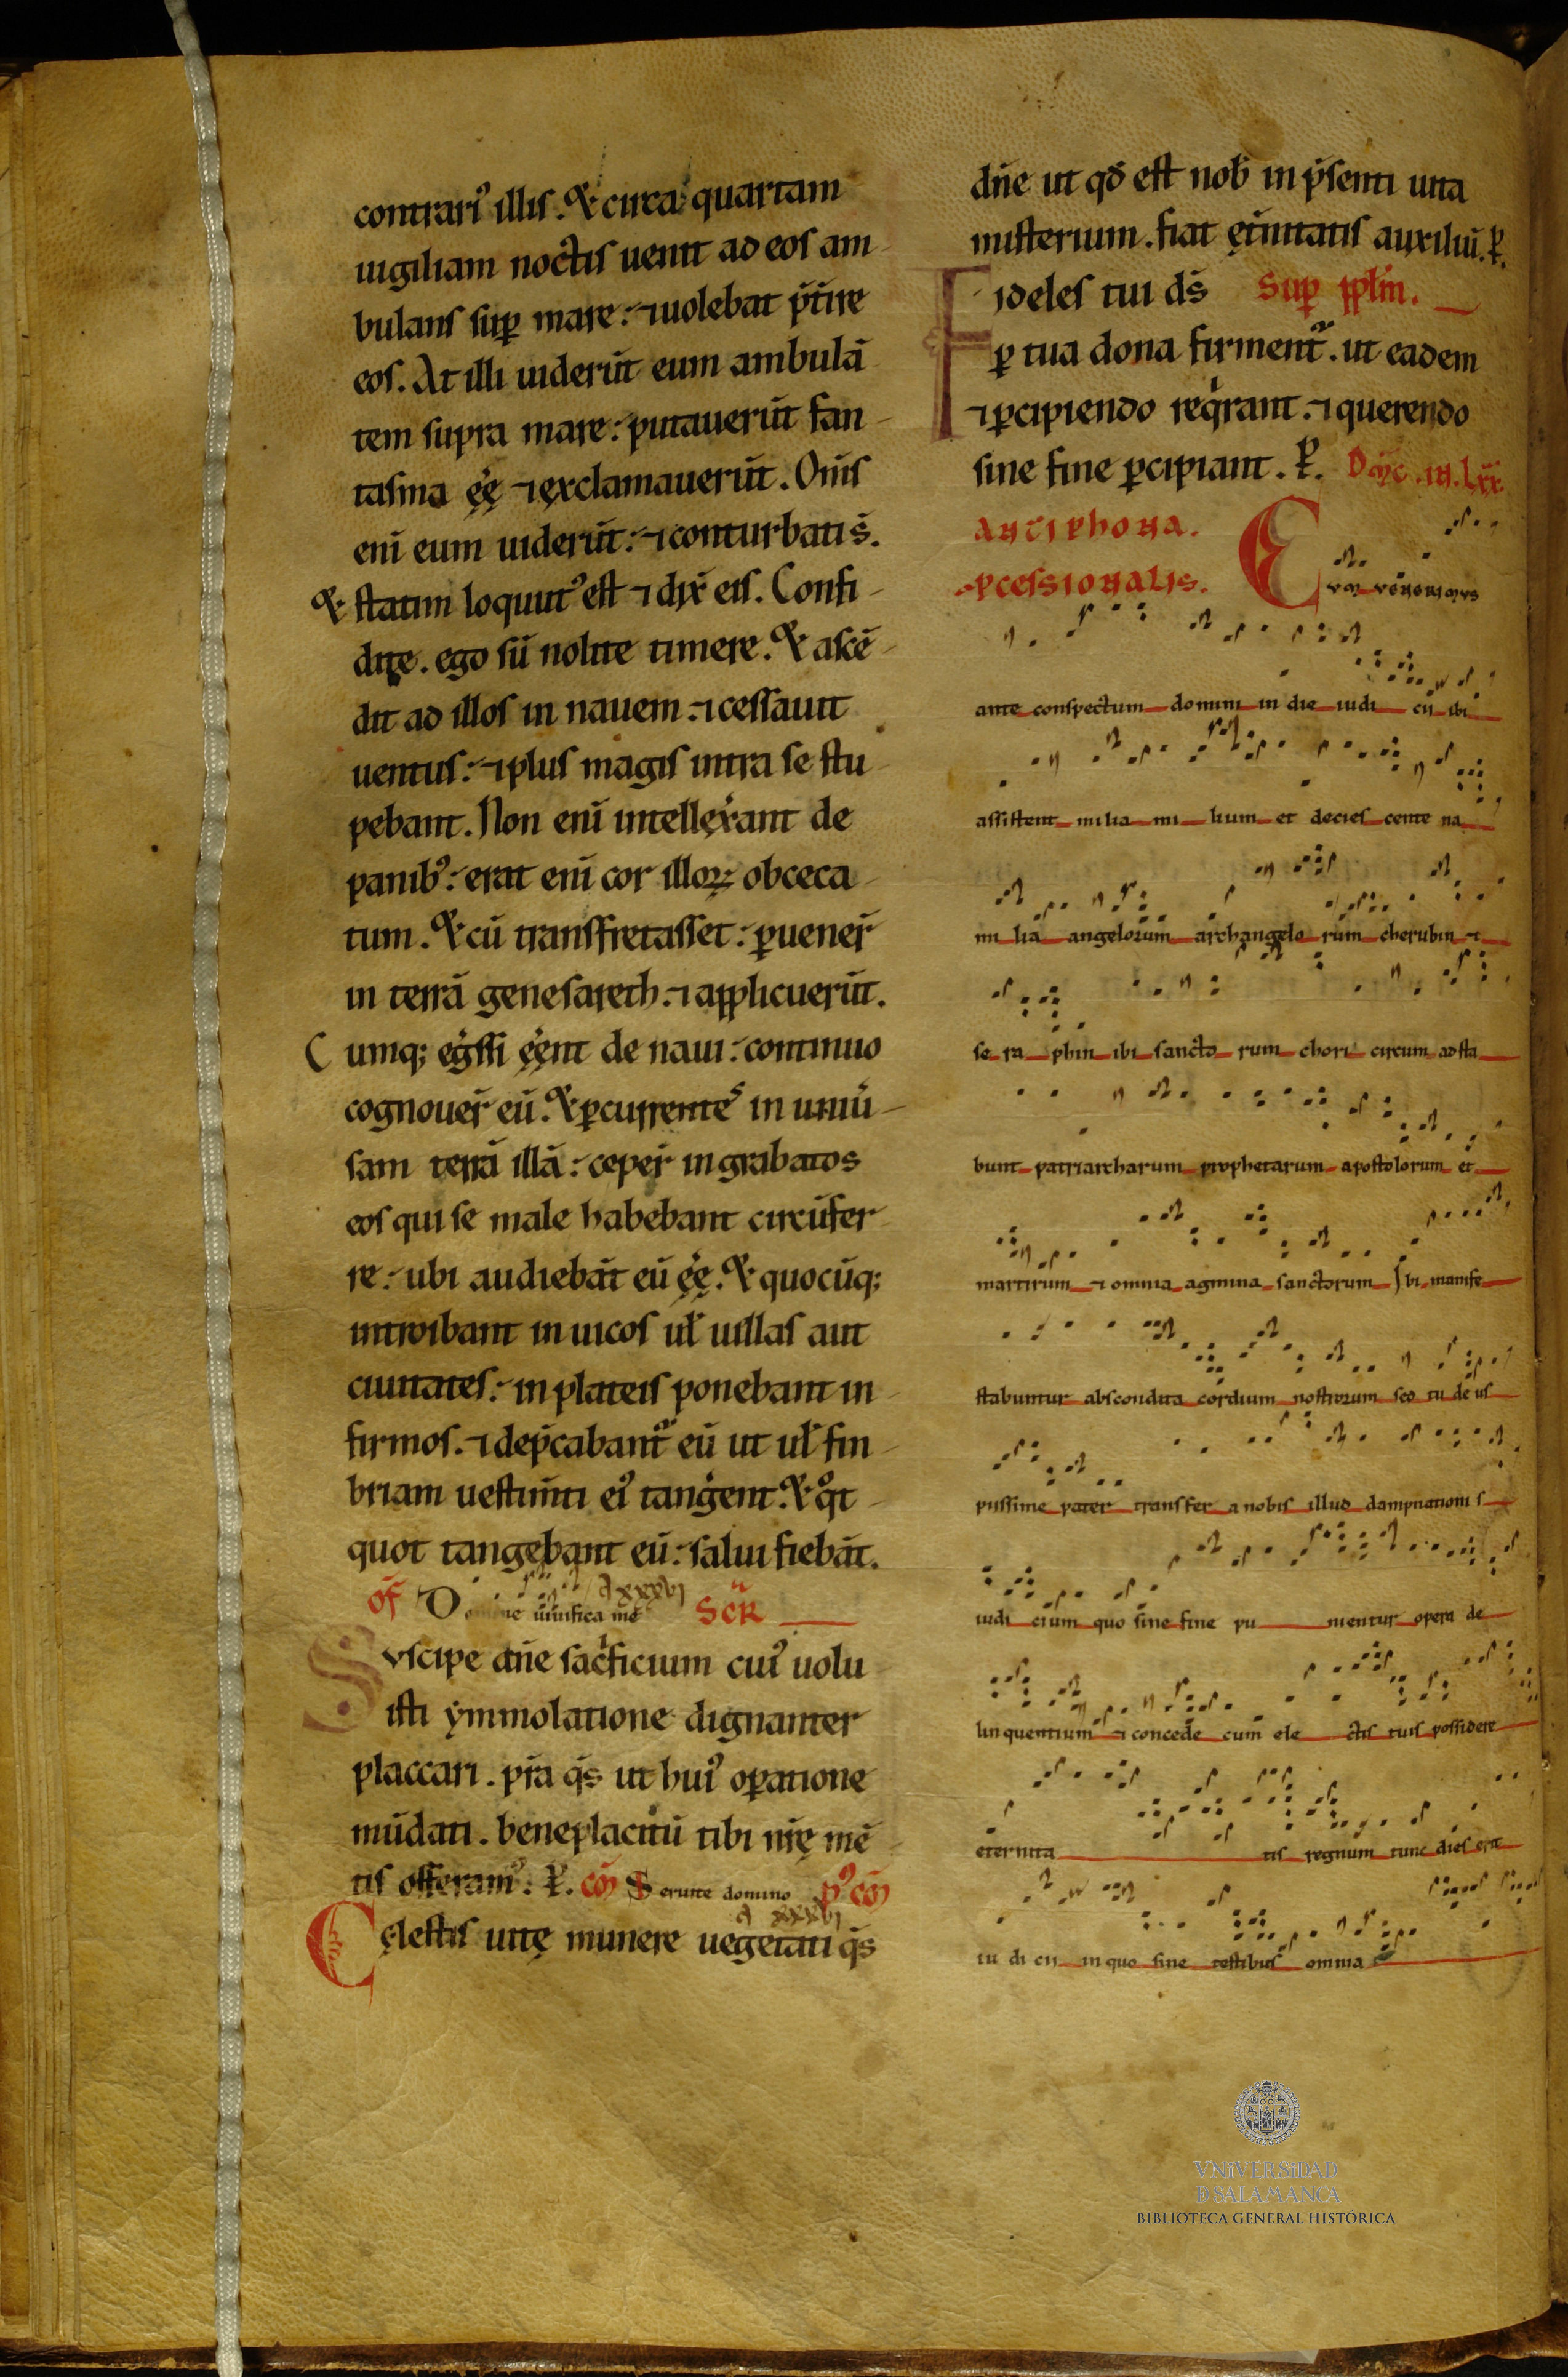 contrari᾽ illis. & circa quartam
uigiliam noctis uenit ad eos am
bulans sup mare: ⁊ uolebat p̄t̄ire
eos. At illi uiderūt eum ambulā
tem supra mare: putauerūt fan
tasma ęę̄ ⁊ exclamauerūt. Om̄s
enī eum uiderūt: ⁊ conturbati s̄.
& statim locut᾽ est ⁊ dix̄ eis. Confi
dite. ego sū nolite timere. & ascē
dit ad illos in nauem ⁊ cessauit
uentus: ⁊ plus magis intra se stu
pebant. Non enī intellex̄ant de
panib᾽: erat enī cor illoꝝ obceca
tum. & cū transfretasset: ꝑuener̄
in terrā genesareth. ⁊ applicuerūt.
Cumq; eḡssi ęęnt de naui: continuo
cognouer̄ eū. & ꝑcurrentes in uniū
sam terrā illā: ceper̄ in grabatos
eos qui se male habebant circūfer
re: ubi audiebāt eū ęę̄. & quocūq;
introibant in uicos ul̄ uillas aut
ciuitates: in plateis ponebant in
firmos. ⁊ dep̄cabant᾽ eū ut ul̄ fin
briam uestim̄ti ei᾽ tanḡent. & qͦt
quot tangebant eū: salui fiebāt.
of̄ Domine uiuifica me A xxxvi Scr̄
Vscipe dn̄e sac̄ficium cui᾽ uolu
isti ymmolatione dignanter
placcari. p̄ra q̄s ut hui᾽ oꝑatione
mūdati. beneplacitū tibi nr̄ę mē
tis offeram᾽. ꝑ. cō Seruite domino p᾽ cō
A xxxvi
Cęlestis uitę munere uegetati q̄s
dn̄e ut qd̄ est nob̄ in p̄senti uita
misterium. fiat ęt̄nitatis auxiliū. ꝑ.
Fideles tui ds̄ Sup pplm̄.
ꝑ tua dona firment᾽. ut eadem
⁊ ꝑcipiendo reqͥrant. ⁊ querendo
sine fine ꝑcipiant. ꝑ. Dm̄c. iii. Lxx.
Antiphona.
pcessionalis. Cvm venerimus
ante conspectum domini in die iudi cii ibi
assistent milia mi lium et decies cente na
mi lia angelorum archangelo rum cherubin ⁊
se ra phin ibi sancto rum chori circum adsta
bunt patriarcharum prophetarum apostolorum et
martirum ⁊ omnia agmina sanctorum Ibi manife
stabuntur abscondita cordium nostrorum sed tu de us
piissime pater transfer a nobis illud dampnationi s
iudi cium quo sine fine pu nientur opera de
linquentium ⁊ concede cum ele ctis tuis possidere
eternita tis regnum tunc dies erit
iu di cii in quo sine testibus omnia
VNiVERSiDAD
D SALAMANCA
BIBLIOTECA GENERAL HISTÓRICA